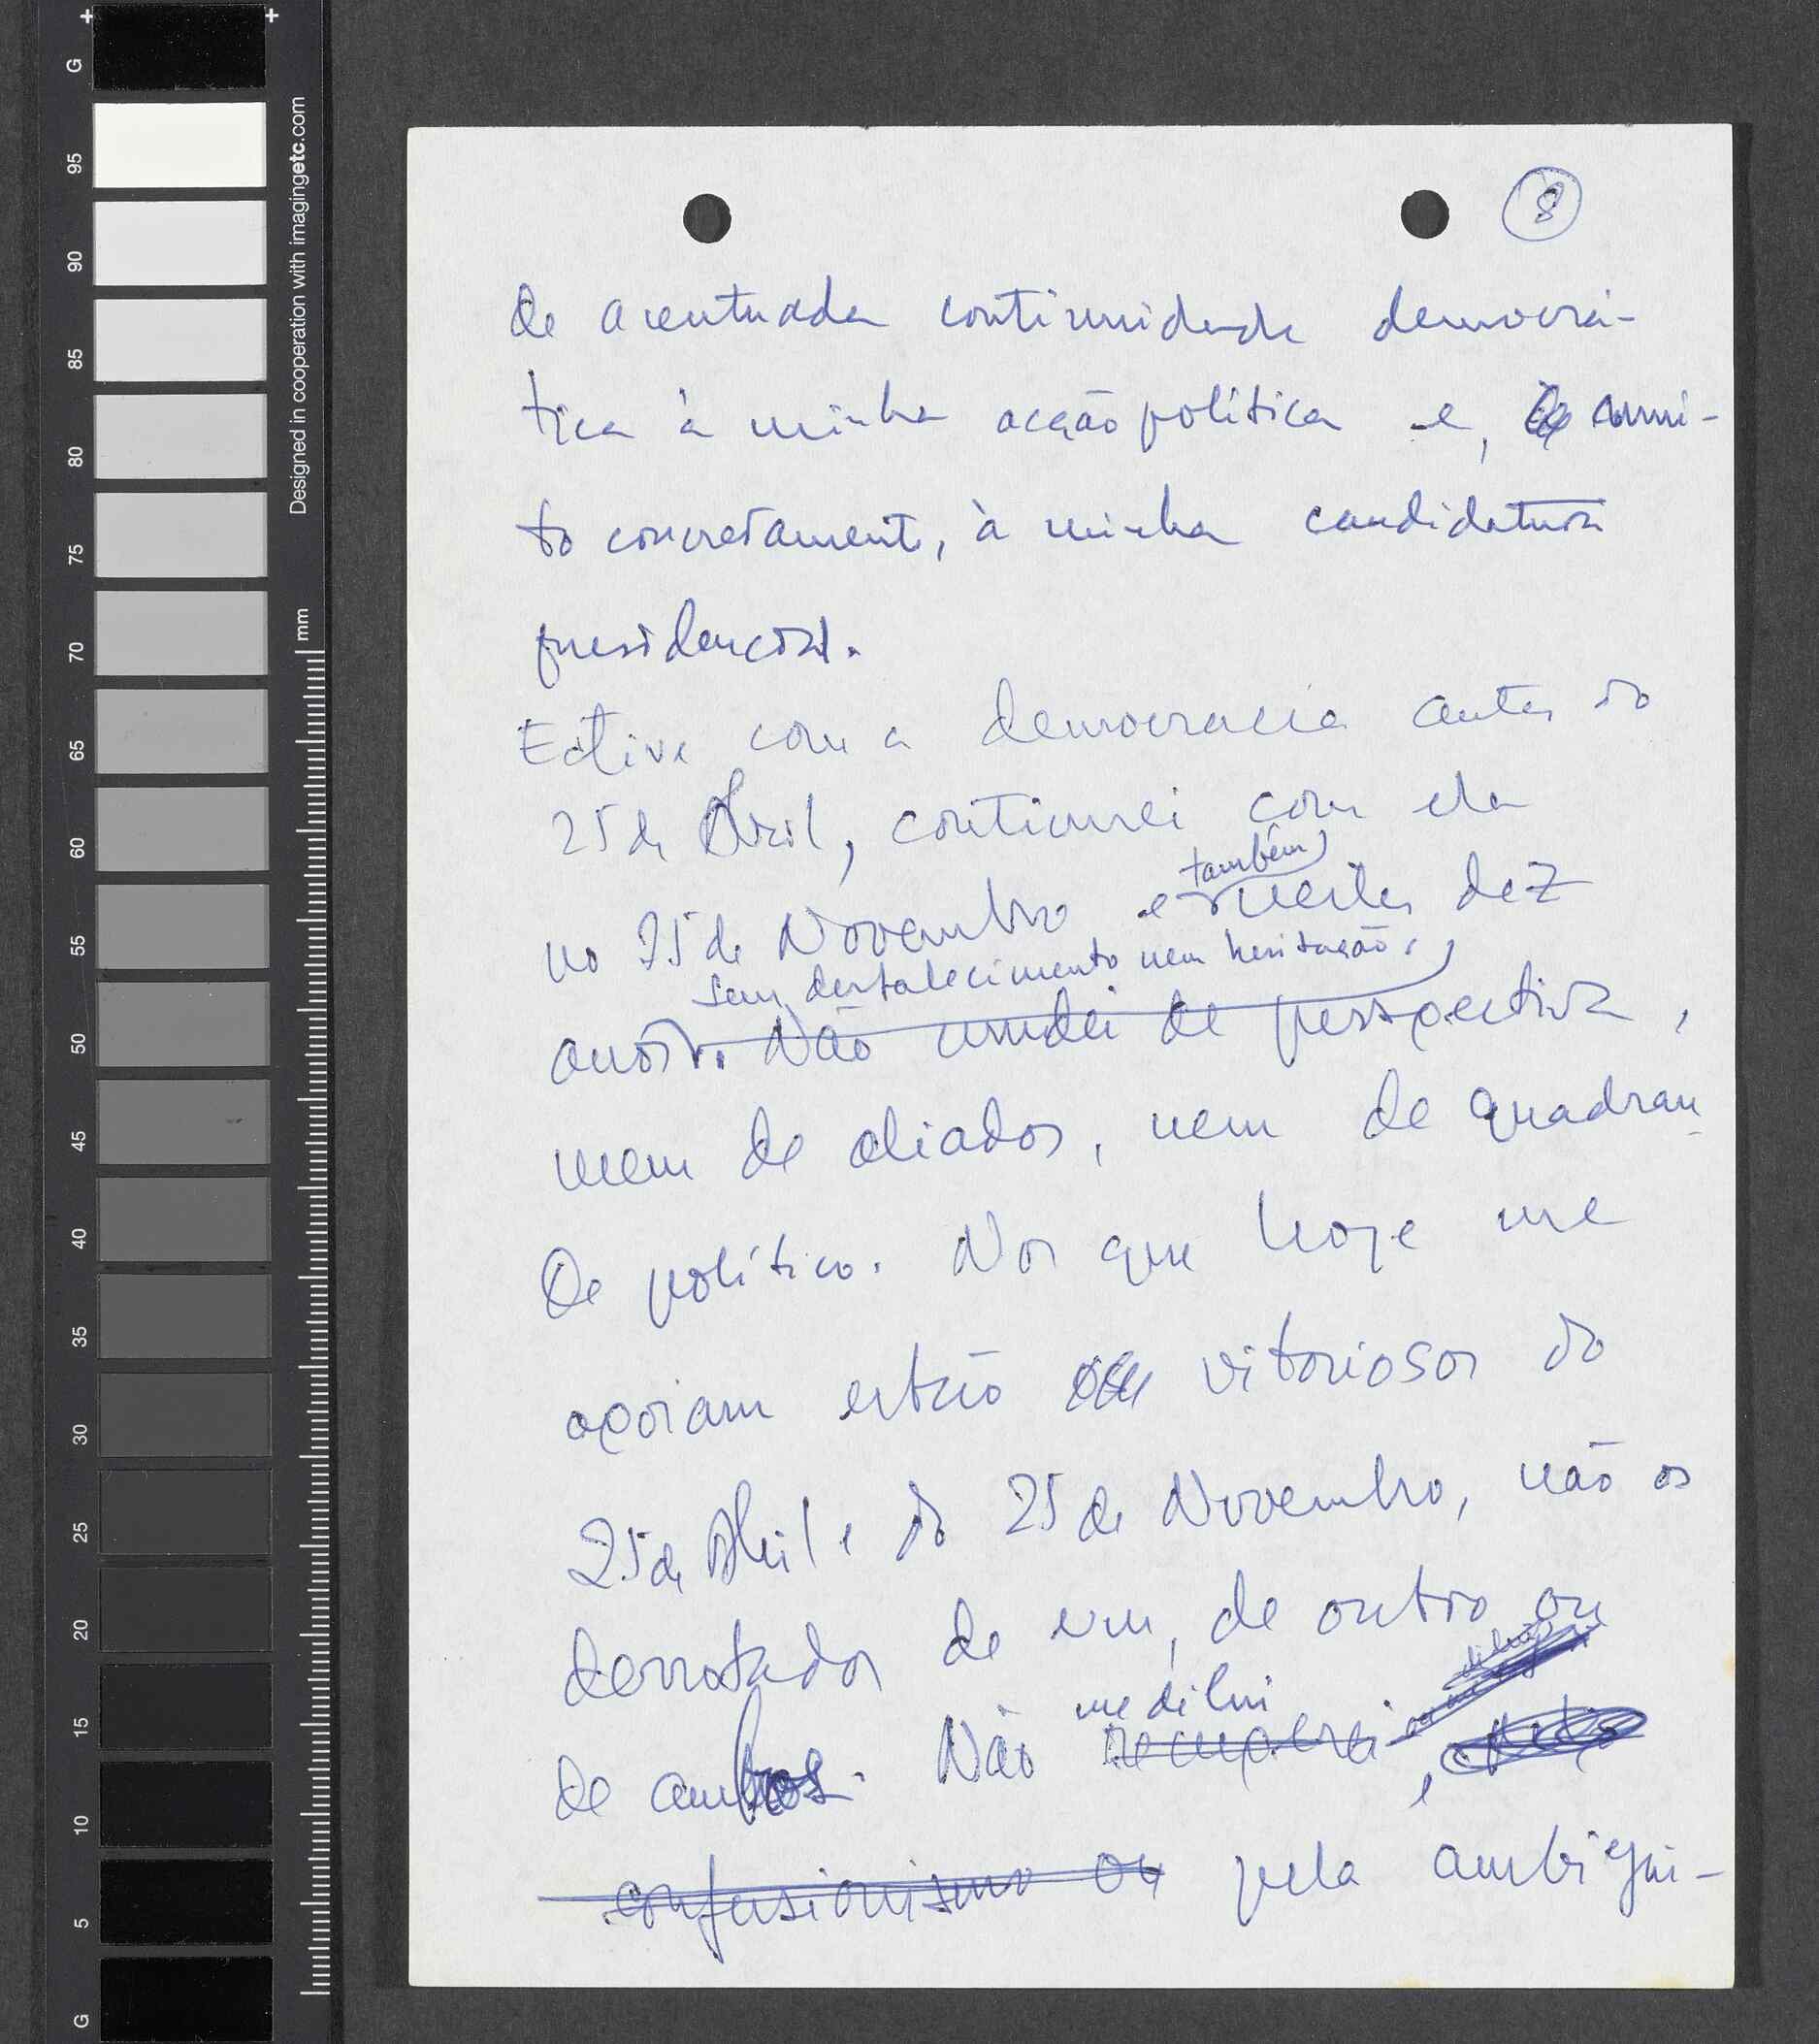 8
de acentuada continuidade democrá-
tica à minha acção política e, mui-
to concretamente, à minha candidatura
presidencial.
Estive com a democracia antes do
25 de Abril, continuei com ela
também
no 25 de Novembro e nestes dez
sem desfalecimento nem hesitação,
anos. Não mudei de perspectiva,
nem de aliados, nem de quadran
te político. Nos que hoje me
apoiam estão vitoriosos do
25 de Abril e do 25 de Novembro, não os
derrotados de um, de outro ou
me dilui
de ambos. Não recuperei,
confusionismo ou pela ambigui-
Designed in cooperation with imagingetc.com
mm
G
95
90
85
80
75
70
65
60
55
50
45
40
35
30
25
20
15
10
5
G